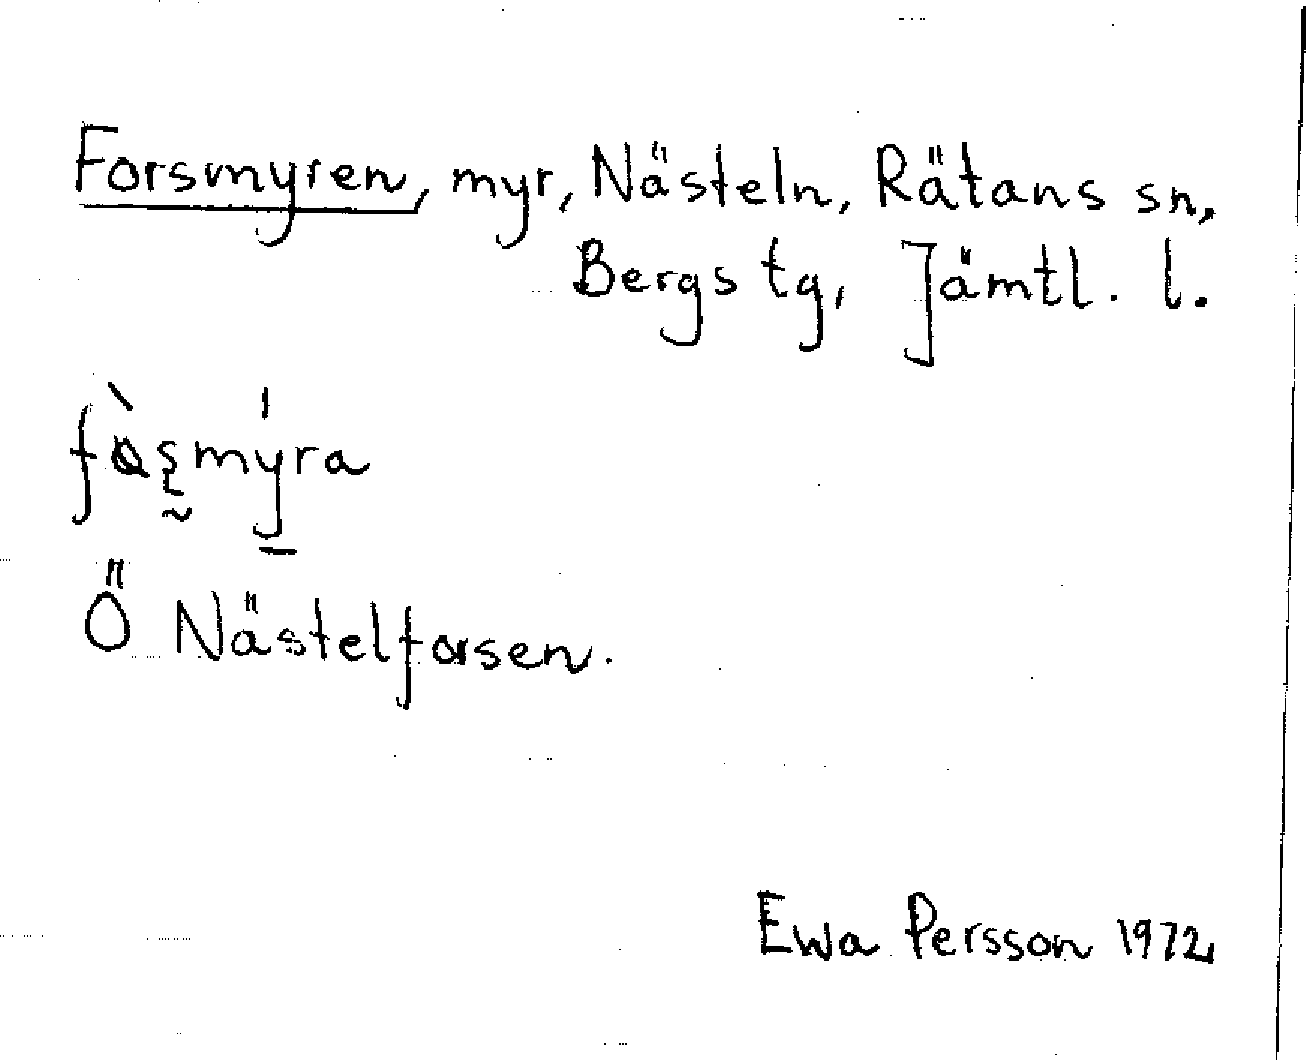 Forsmyren, myr, Nästeln, Rätans sn,
Bergs tg, Jämtl. l.
fòs̨mýra
Ö Nästelforsen.
Ewa Persson 1972